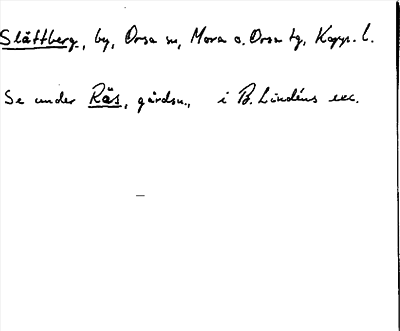 Slättberg, by, Orsa sn, Mora o. Orsa tg, Kopp. l.
Se under Räs, gårdsn., i B. Lindéns exc.